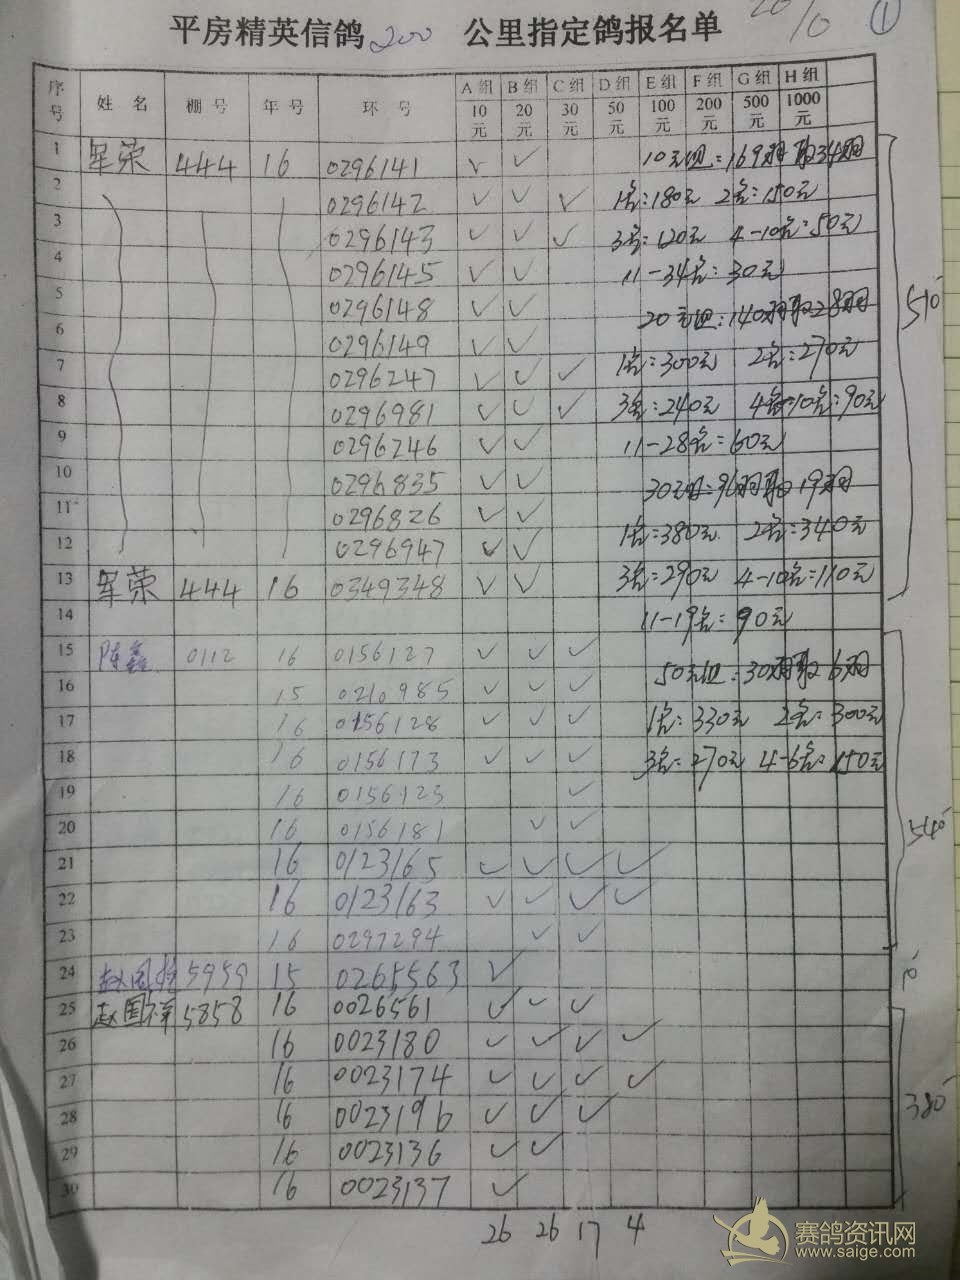 20/10 ①
平房精英信鸽 200 公里指定鸽报名单
序号 姓 名 棚 号 年 号 环 号 A组 10元 B组 20元 C组 30元 D组 50元 E组 100元 F组 200元 G组 500元 H组 1000元
1 军荣 444 16 0296141 ✓ ✓ 10元组:169羽取34羽
2 0296142 ✓ ✓ ✓ 1名:180元 2名:150元
3 0296143 ✓ ✓ ✓ 3名:120元 4-10名:50元
4 0296145 ✓ ✓ 11-34名:30元
5 0296148 ✓ ✓ 20元组:140羽取28羽
6 0296149 ✓ ✓
7 0296247 ✓ ✓ ✓ 1名:300元 2名:270元
8 0296981 ✓ ✓ ✓ 3名:240元 4名-10名:90元
9 0296246 ✓ ✓ 11-28名:60元
10 0296835 ✓ ✓ 30元组:96羽取19羽
11 0296826 ✓ ✓
12 0296947 ✓ ✓ 1名:380元 2名:340元
13 军荣 444 16 0349348 ✓ ✓ 3名:290元 4-10名:110元
510
14 11-19名:90元
15 陈鑫 0112 16 0156127 ✓ ✓ ✓ 50元组:30羽取6羽
16 15 0210985 ✓ ✓ ✓
17 16 0156128 ✓ ✓ ✓ 1名:330元 2名:300元
18 16 0156173 ✓ ✓ ✓ 3名:270元 4-6名:150元
19 16 0156123 ✓
20 16 0156181 ✓ ✓ 540
21 16 0123165 ✓ ✓ ✓ ✓
22 16 0123163 ✓ ✓ ✓ ✓
23 16 0297294 ✓ ✓
24 5959 15 0265563 ✓ 10
25 赵国祥 5858 16 0026561 ✓ ✓ ✓
26 16 0023180 ✓ ✓ ✓ ✓
27 16 0023174 ✓ ✓ ✓ ✓
28 16 0023196 ✓ ✓ ✓ 380
29 16 0023136 ✓ ✓
30 16 0023137 ✓
26 26 17 4
赛鸽资讯网
www.saige.com